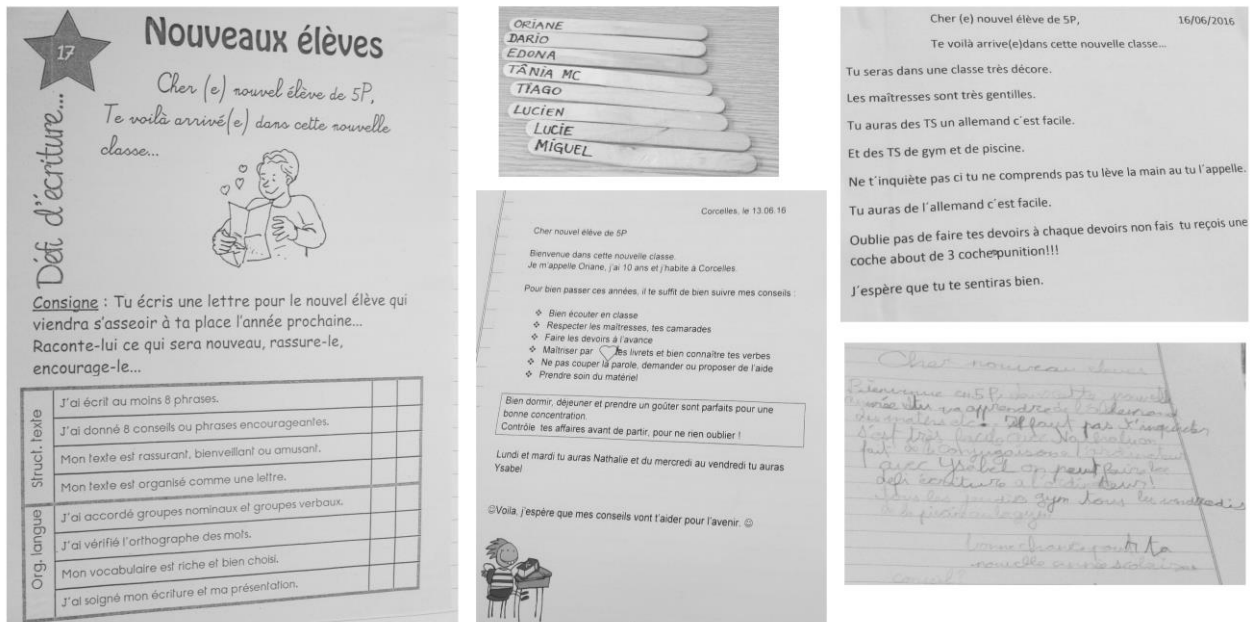 17
Nouveaux élèves
Défi d'écriture...
Cher (e) nouvel élève de 5P,
Te voilà arrivé(e) dans cette nouvelle
classe...
Consigne : Tu écris une lettre pour le nouvel élève qui
viendra s'asseoir à ta place l'année prochaine...
Raconte-lui ce qui sera nouveau, rassure-le,
encourage-le...
Struct.texte
J'ai écrit au moins 8 phrases.
J'ai donné 8 conseils ou phrases encourageantes.
Mon texte est rassurant, bienveillant ou amusant.
Mon texte est organisé comme une lettre.
Org. langue
J'ai accordé groupes nominaux et groupes verbaux.
J'ai vérifié l'orthographe des mots.
Mon vocabulaire est riche et bien choisi.
J'ai soigné mon écriture et ma présentation.
ORIANE
DARIO
EDONA
TÂNIA MC
TIAGO
LUCIEN
LUCIE
MIGUEL
Corcelles, le 13.06.16
Cher nouvel élève de 5P
Bienvenue dans cette nouvelle classe.
Je m'appelle Oriane, j'ai 10 ans et j'habite à Corcelles.
Pour bien passer ces années, il te suffit de bien suivre mes conseils :
❖ Bien écouter en classe
❖ Respecter les maîtresses, tes camarades
❖ Faire les devoirs à l'avance
❖ Maîtriser par les livrets et bien connaître tes verbes
❖ Ne pas couper la parole, demander ou proposer de l'aide
❖ Prendre soin du matériel
Bien dormir, déjeuner et prendre un goûter sont parfaits pour une
bonne concentration.
Contrôle tes affaires avant de partir, pour ne rien oublier !
Lundi et mardi tu auras Nathalie et du mercredi au vendredi tu auras
Ysabel
☺Voila, j'espère que mes conseils vont t'aider pour l'avenir. ☺
Cher (e) nouvel élève de 5P, 16/06/2016
Te voilà arrive(e)dans cette nouvelle classe...
Tu seras dans une classe très décore.
Les maîtresses sont très gentilles.
Tu auras des TS un allemand c´est facile.
Et des TS de gym et de piscine.
Ne t´inquiète pas ci tu ne comprends pas tu lève la main au tu l´appelle.
Tu auras de l´allemand c´est facile.
Oublie pas de faire tes devoirs à chaque devoirs non fais tu reçois une
coche about de 3 coche punition!!!
J´espère que tu te sentiras bien.
Cher nouveau
Bienvenue en 5P dans cette nouvelle
apprendre de l'allemand
Il faut pas t'inquièter
c'est très facile avec Nathalie on
fait de la conjugaison a l'ordinateur
avec Ysabel on peut faire les
défi écriture a l'ordinateur!
tous les jeudis gym tous les vendredis
nouvelle année scolaire